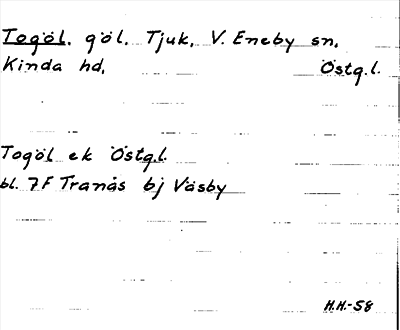 Togöl. göl. Tjuk. V. Eneby sn.
Kinda hd. Östg.l.
Togöl ek Östg.l.
bl. 7F Tranås bj Väsby
H.H.-58